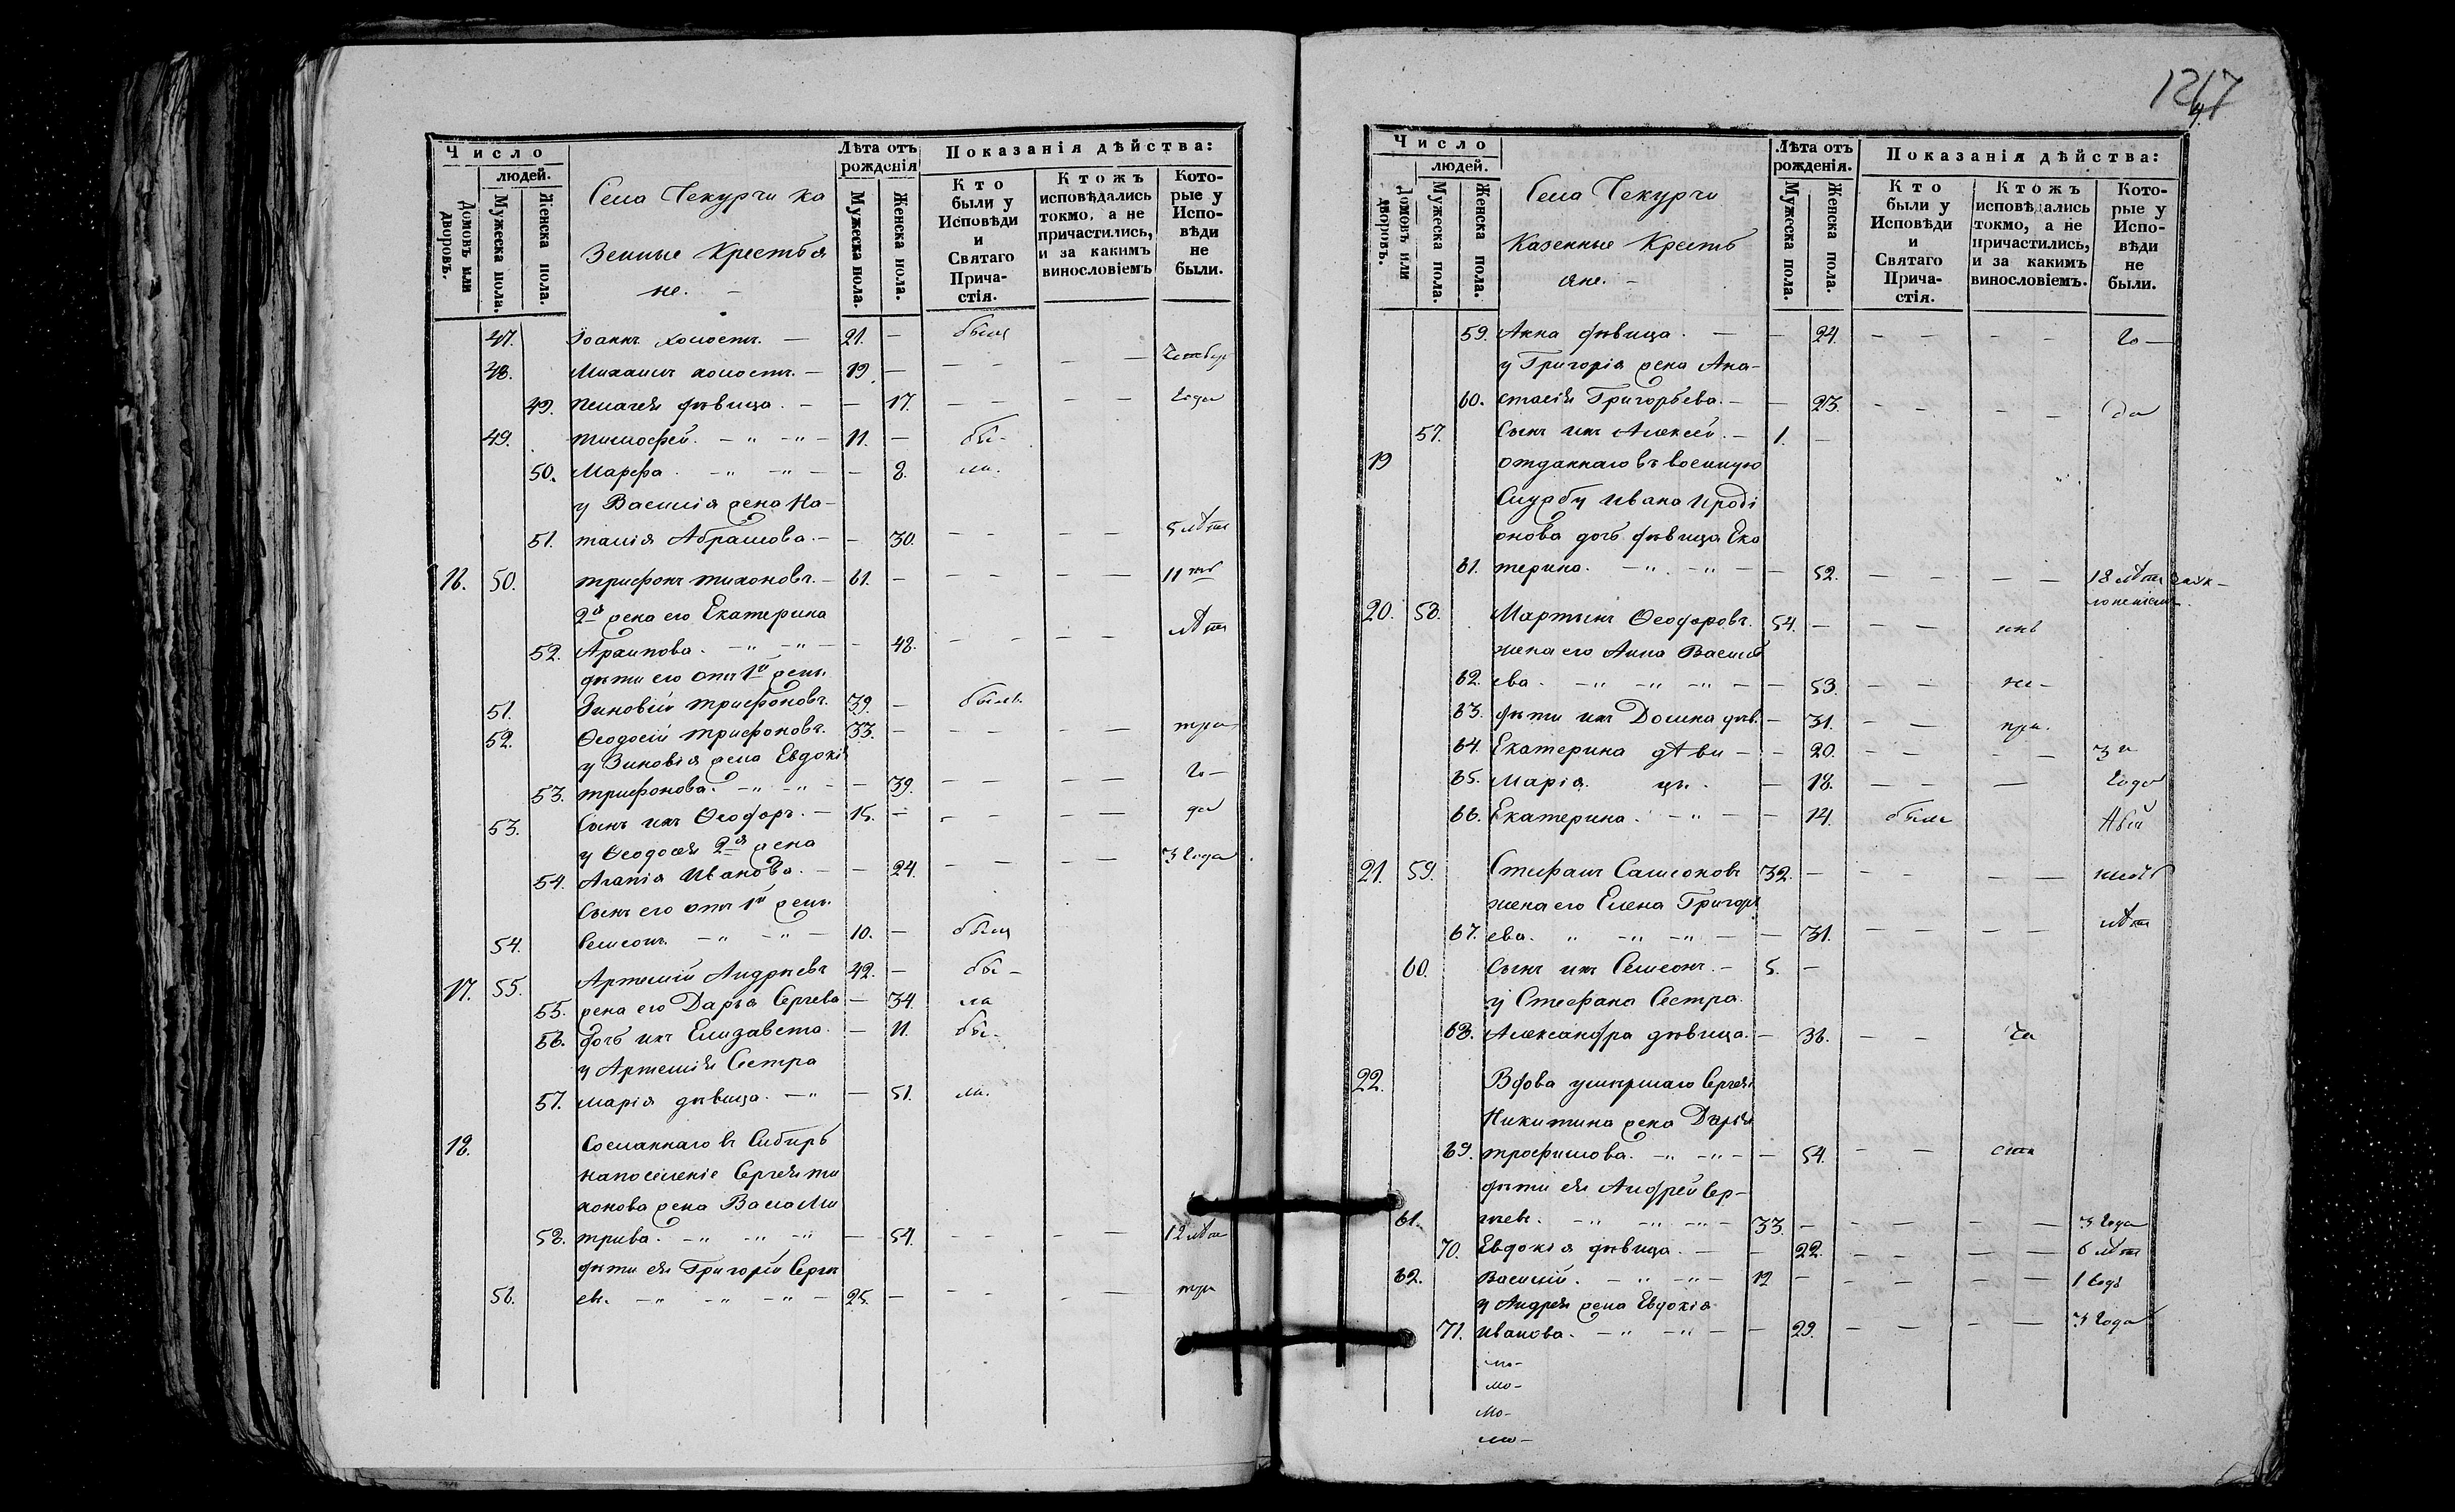 Число
людей.
Домовъ или дворовъ.
Мужеска пола.
Женска пола.
Села Чекурчи Ка
зенные Крестья
не. –
Лѣта отъ рожденія
Мужеска пола.
Женска пола.
Показанія дѣйства:
Кто были у Исповѣди и Святаго Причастія.
Ктожъ исповѣдались токмо, а не причастились, и за какимъ винословіемъ
Которые у Исповѣди не были.
47. Іоаннъ холостъ. – 21. –
48. Михаилъ холостъ. – 19. –
49. Пелагея дѣвица. – – 17. года
49. Тимоѳей. – „ – „ – 11. – бы-
50. Марфа. – „ – „ – – 8. ли.
у Василія жена На-
51. талія Абрамова. – – 30. – – – – 5 лѣтъ
16. 50. Трифонъ Тихоновъ. – 61. – – – – – 11ть
2я жена его Екатерина
52. Архипова. – „ – „ – – 48. – – – – лѣтъ
дѣти его отъ 1й жены
51. Зиновій Трифоновъ. 39. – былъ.
52. Ѳеодосій Трифоновъ. 33. – – – – – три
у Зиновія жена Евдокія
53. Трифонова. – „ – „ – – 39. – – – – го–
53. Сынъ ихъ Ѳеодоръ. – 15. – – – – – да
у Ѳеодосія 2я жена
54. Агапія Иванова. – – 24. – – – – 3 года
Сынъ его отъ 1й жены
54. Семеонъ. – „ – „ – 10. – былъ
17. 55. Артемій Андреевъ 42. – бы–
55. жена его Дарья Сергева – 34. ла
56. дочь ихъ Елизавета. – 11. бы–
у Артемія Сестра
57. Марія дѣвица. – „ – 51. ли.
18. Сосланнаго въ Сибирь
на поселеніе Сергея Ти
хонова жена Васса Ми
58. трива. – „ – „ – „ – 54. – – – – 12 лѣтъ
дѣти ея Григорій Серге
56. евъ. – „ – „ – „ – 25. – – – – – три
1217
Число
людей.
Домовъ или дворовъ.
Мужеска пола.
Женска пола.
Села Чекурчи
Казенные Кресть
яне. –
Лѣта отъ рожденія.
Мужеска пола.
Женска пола.
Показанія дѣйства:
Кто были у Исповѣди и Святаго Причастія.
Ктожъ исповѣдались токмо, а не причастились, и за какимъ винословіемъ.
Которые у Исповѣди не были.
59. Анна дѣвица. – – 24. – – – – го –
у Григорія жена Ана–
60. стасія Григорьева. – – 23. – – – – да
57. Сынъ ихъ Алексей. – 1. –
19 отданнаго въ военную
Службу Ивана Ироді
онова дочь дѣвица Ека
61. терина. – „ – „ – – 52. – – – – 18 лѣтъ
20. 58. Мартынъ Ѳеодоровъ. 54. – – –
жена его Анна Василь
62. ева. – „ – „ – „ – – 53. – – не –
63. дѣти ихъ Домна дѣв. – 31. – – при.
64. Екатерина дѣви – – 20. – – – – 3 и
65. Марія цы. – 18. – – – года
66. Екатерина. – „ – – 14. была
21. 59. Стефанъ Самсоновъ 32. – – – – –
жена его Елена Григорь
67. ева. „ – „ – „ – – 31. – – – – лѣтъ
60. Сынъ ихъ Семеонъ. – 5. –
у Стефана Сестра.
68. Александра дѣвица. – 36. – – ча
22. Вдова умершаго Сергея
Никитина жена Дарья
69. Трофимова. – „ – „ – – 54. – – сти
дѣти ея Андрей Сер–
61. геевъ. – „ – „ – „ – 33. – – – – – 3 года
70. Евдокія дѣвица. – – 22. – – – – 6 лѣтъ
62. Василій. – „ – „ – 12 – – – – – 1 годъ
у Андрея жена Евдокія
71. Иванова. – „ – „ – – 29. – – – – 3 года